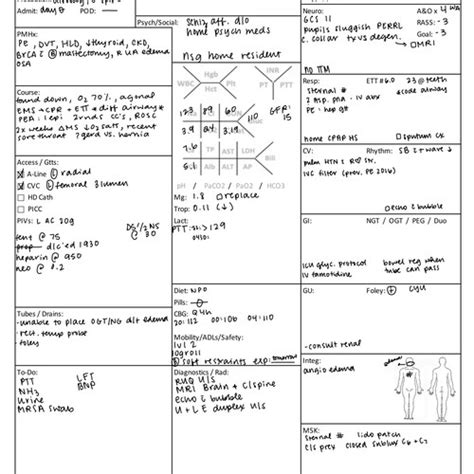 Admit: day 8 POD:
Psych/Social: schiz aff. d/o
home psych meds
nsg home resident
Neuro: A&Ox 4 WA
GCS 11 RASS: -3
pupils sluggish PERRL CAM:
C. collar
MRI
no TTM
PMHx:
PE, DVT, HLD, ↓thyroid, CKD,
mastectomy, RUA edema
OSA
Resp: ETT #6.0 23 @ teeth
sternal # code airway
2 asp. pna - IV abx
PE: hep gtt
home CPAP HS
Hgb
WBC Plt
Hct
INR
PT PTT
123 89 60 110 GFR:
15
3.9 24 3.19
7.6
5.1
TP AST LDH
Alb ALT AP
Bili
pH / PaCO2 / PaO2 / HCO3
Mg: 1.8 replace
Trop: 0.11 (↓)
Lact:
PTT: >129
0410:
Course:
found down, O2 70%, agonal
EMS → CPR + ETT → diff airway*
PEA: 1 epi 2 rnds CC's, ROSC
2x weeks AMS ↓O2 sats, recent
sore throat ?gerd vs. hernia
CV: Rhythm: SB & wave ↓
pulm HTN & RV strain
IVC filter (prev. PE 2016)
echo & bubble
Access / Gtts:
A-Line L radial
CVC L femoral 3 lumen
HD Cath
PICC
PIVs: L AC 20g
fent @ 75
prop d/c'ed 1930
heparin @ 950
neo @ 0.2
@ 30
GI: NGT / OGT / PEG / Duo
ICU glyc. protocol
IV famotidine
bowel reg when
tube can pass
Diet: NPO
Pills:
CBG: Q4h
20: 112 00: 106 04: 110
Mobility/ADLs/Safety:
lvl 2
logroll
soft restraints exp: tomorrow
GU: Foley: CYU
-consult renal
Tubes / Drains:
-unable to place OGT/NG d/t edema
-rect. temp probe
-foley
To-Do:
PTT LFT
NH3 BNP
Urine
MRSA swab
Diagnostics / Rad:
RUQ U/S
MRI Brain + C/spine
echo & bubble
U + LE duplex U/S
Integ:
angioedema
edema
MSK:
sternal # lido patch
c/s prev closed sublux C6 + C7